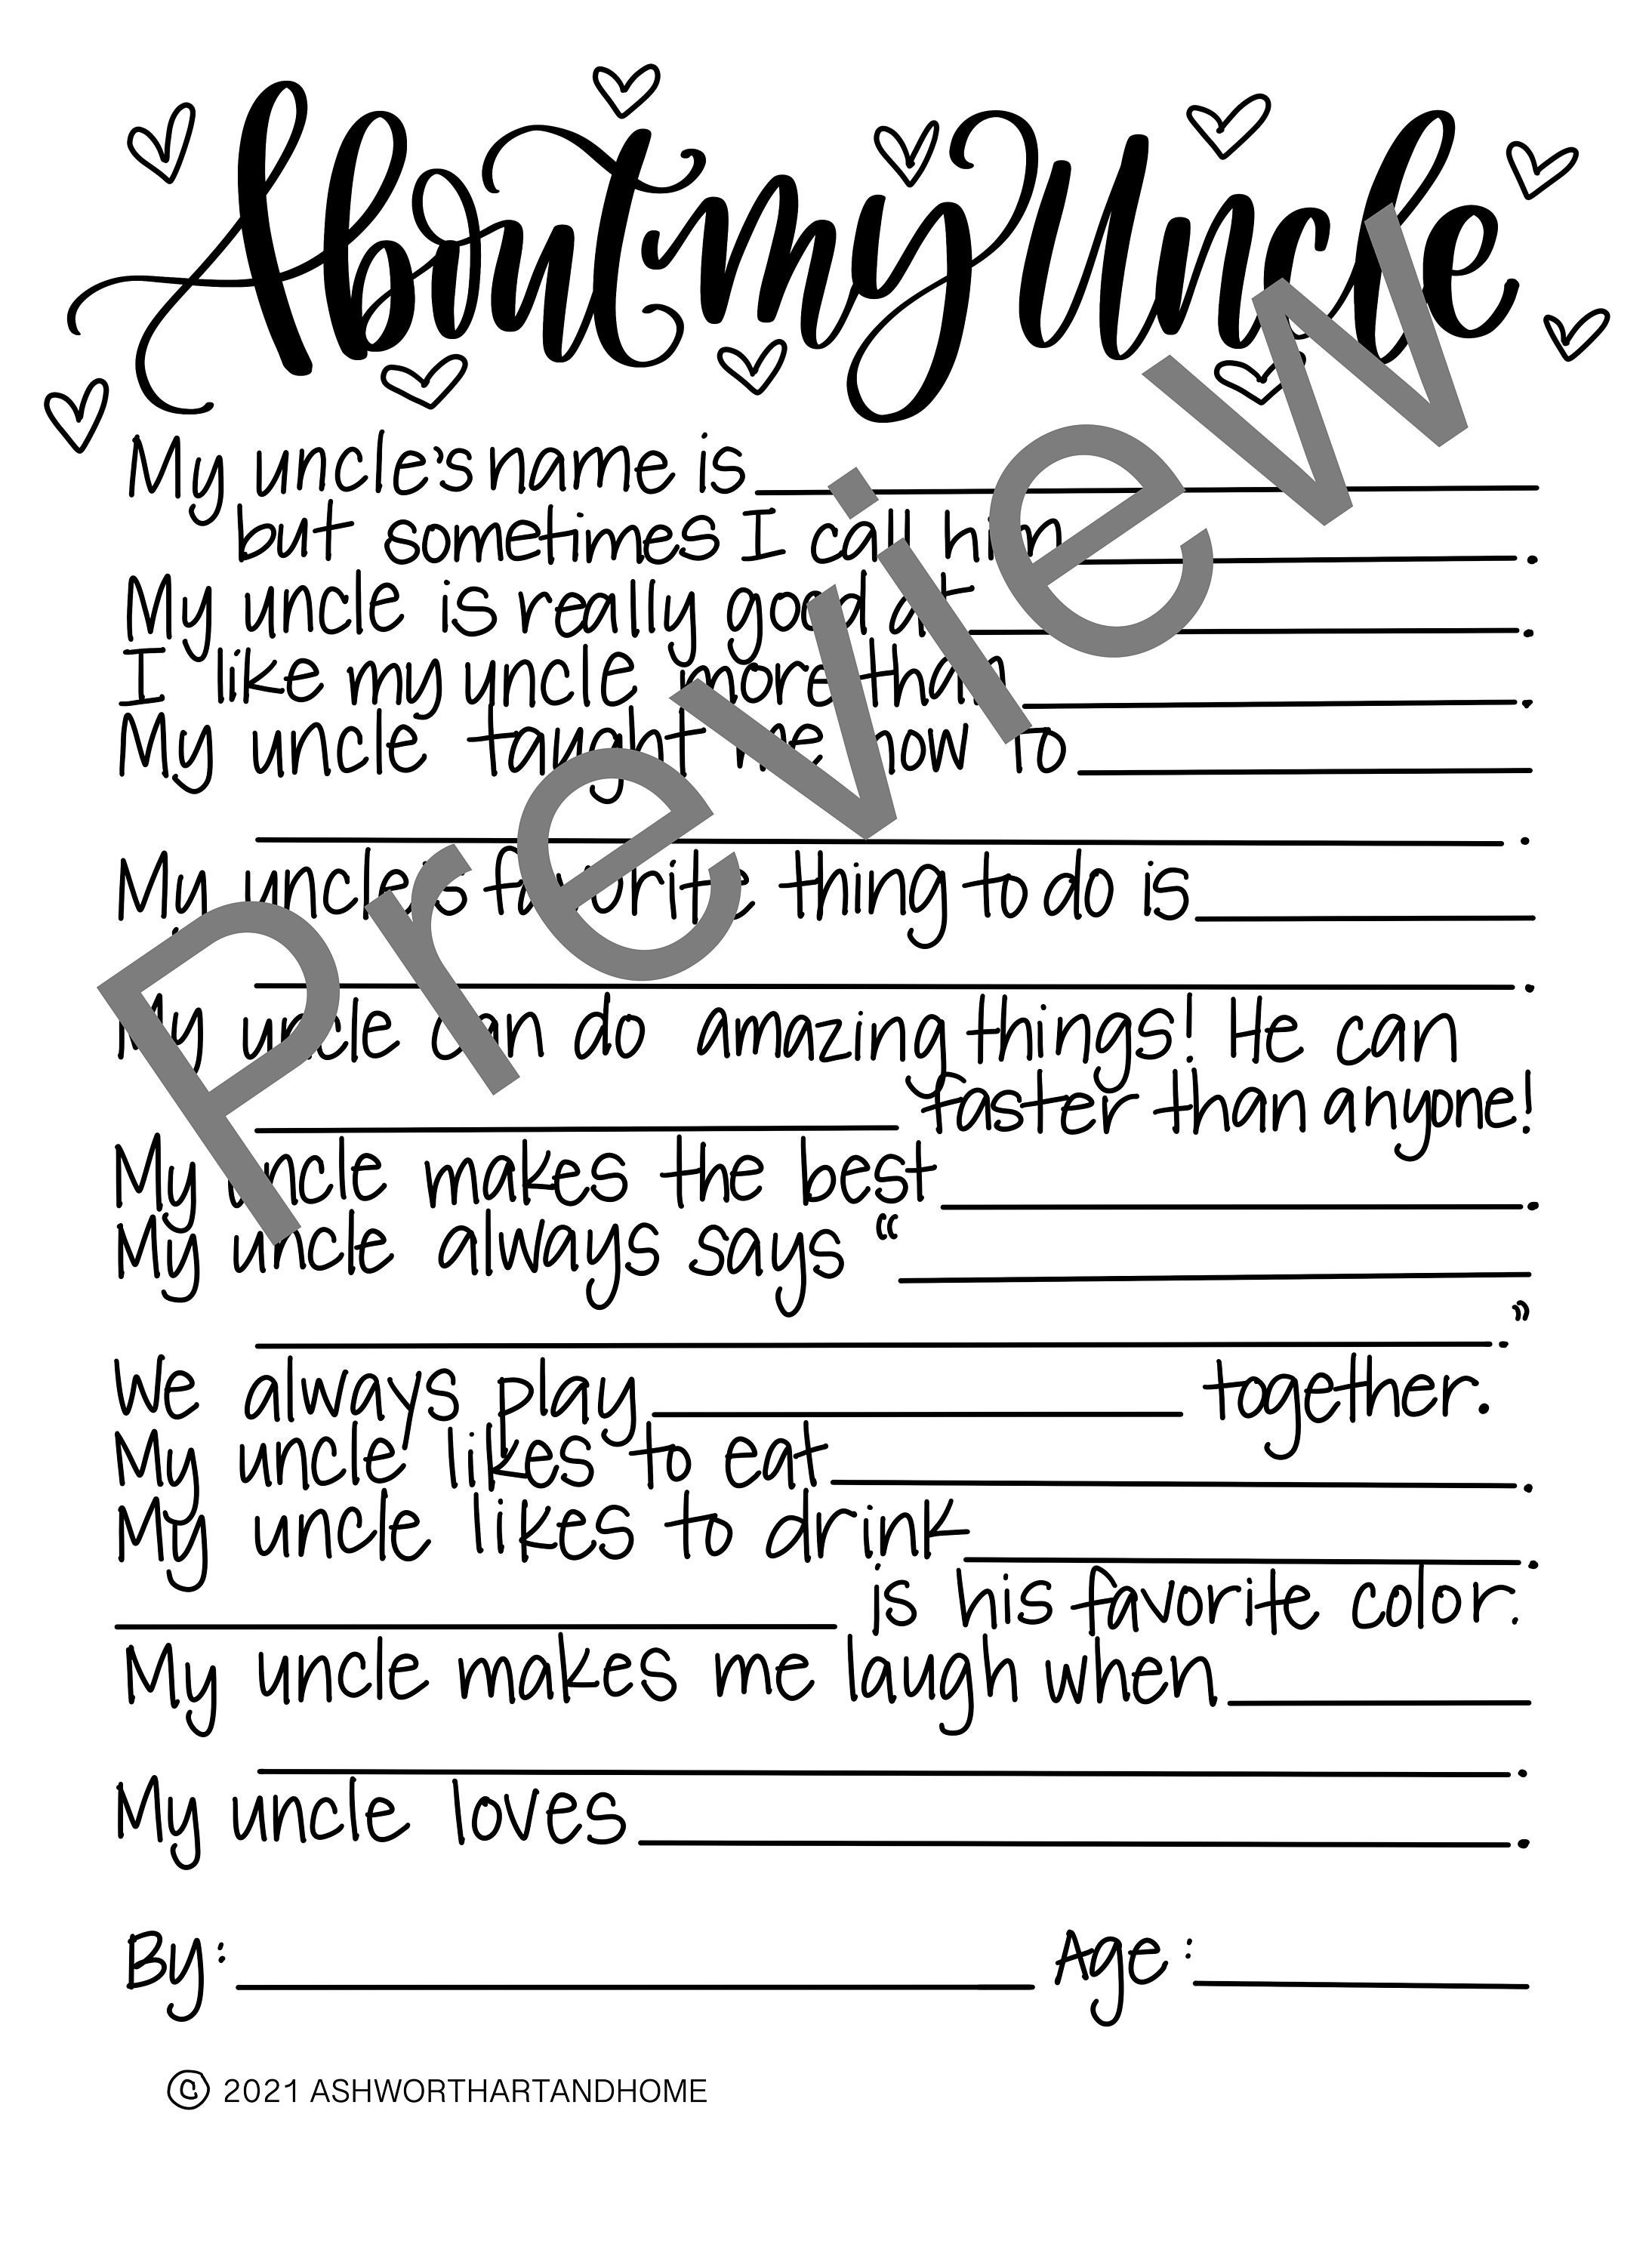 About my Uncle
My uncle's name is
but sometimes I call him
.
My uncle is really good at
.
I like my uncle more than
.
My uncle taught me how to
.
My uncle's favorite thing to do is
.
My uncle can do amazing things! He can
faster than anyone!
My uncle makes the best
.
My uncle always says “
.”
We always play together.
My uncle likes to eat
.
My uncle likes to drink
.
is his favorite color.
My uncle makes me laugh when
.
My uncle loves
.
By: Age:
© 2021 ASHWORTHARTANDHOME
Preview